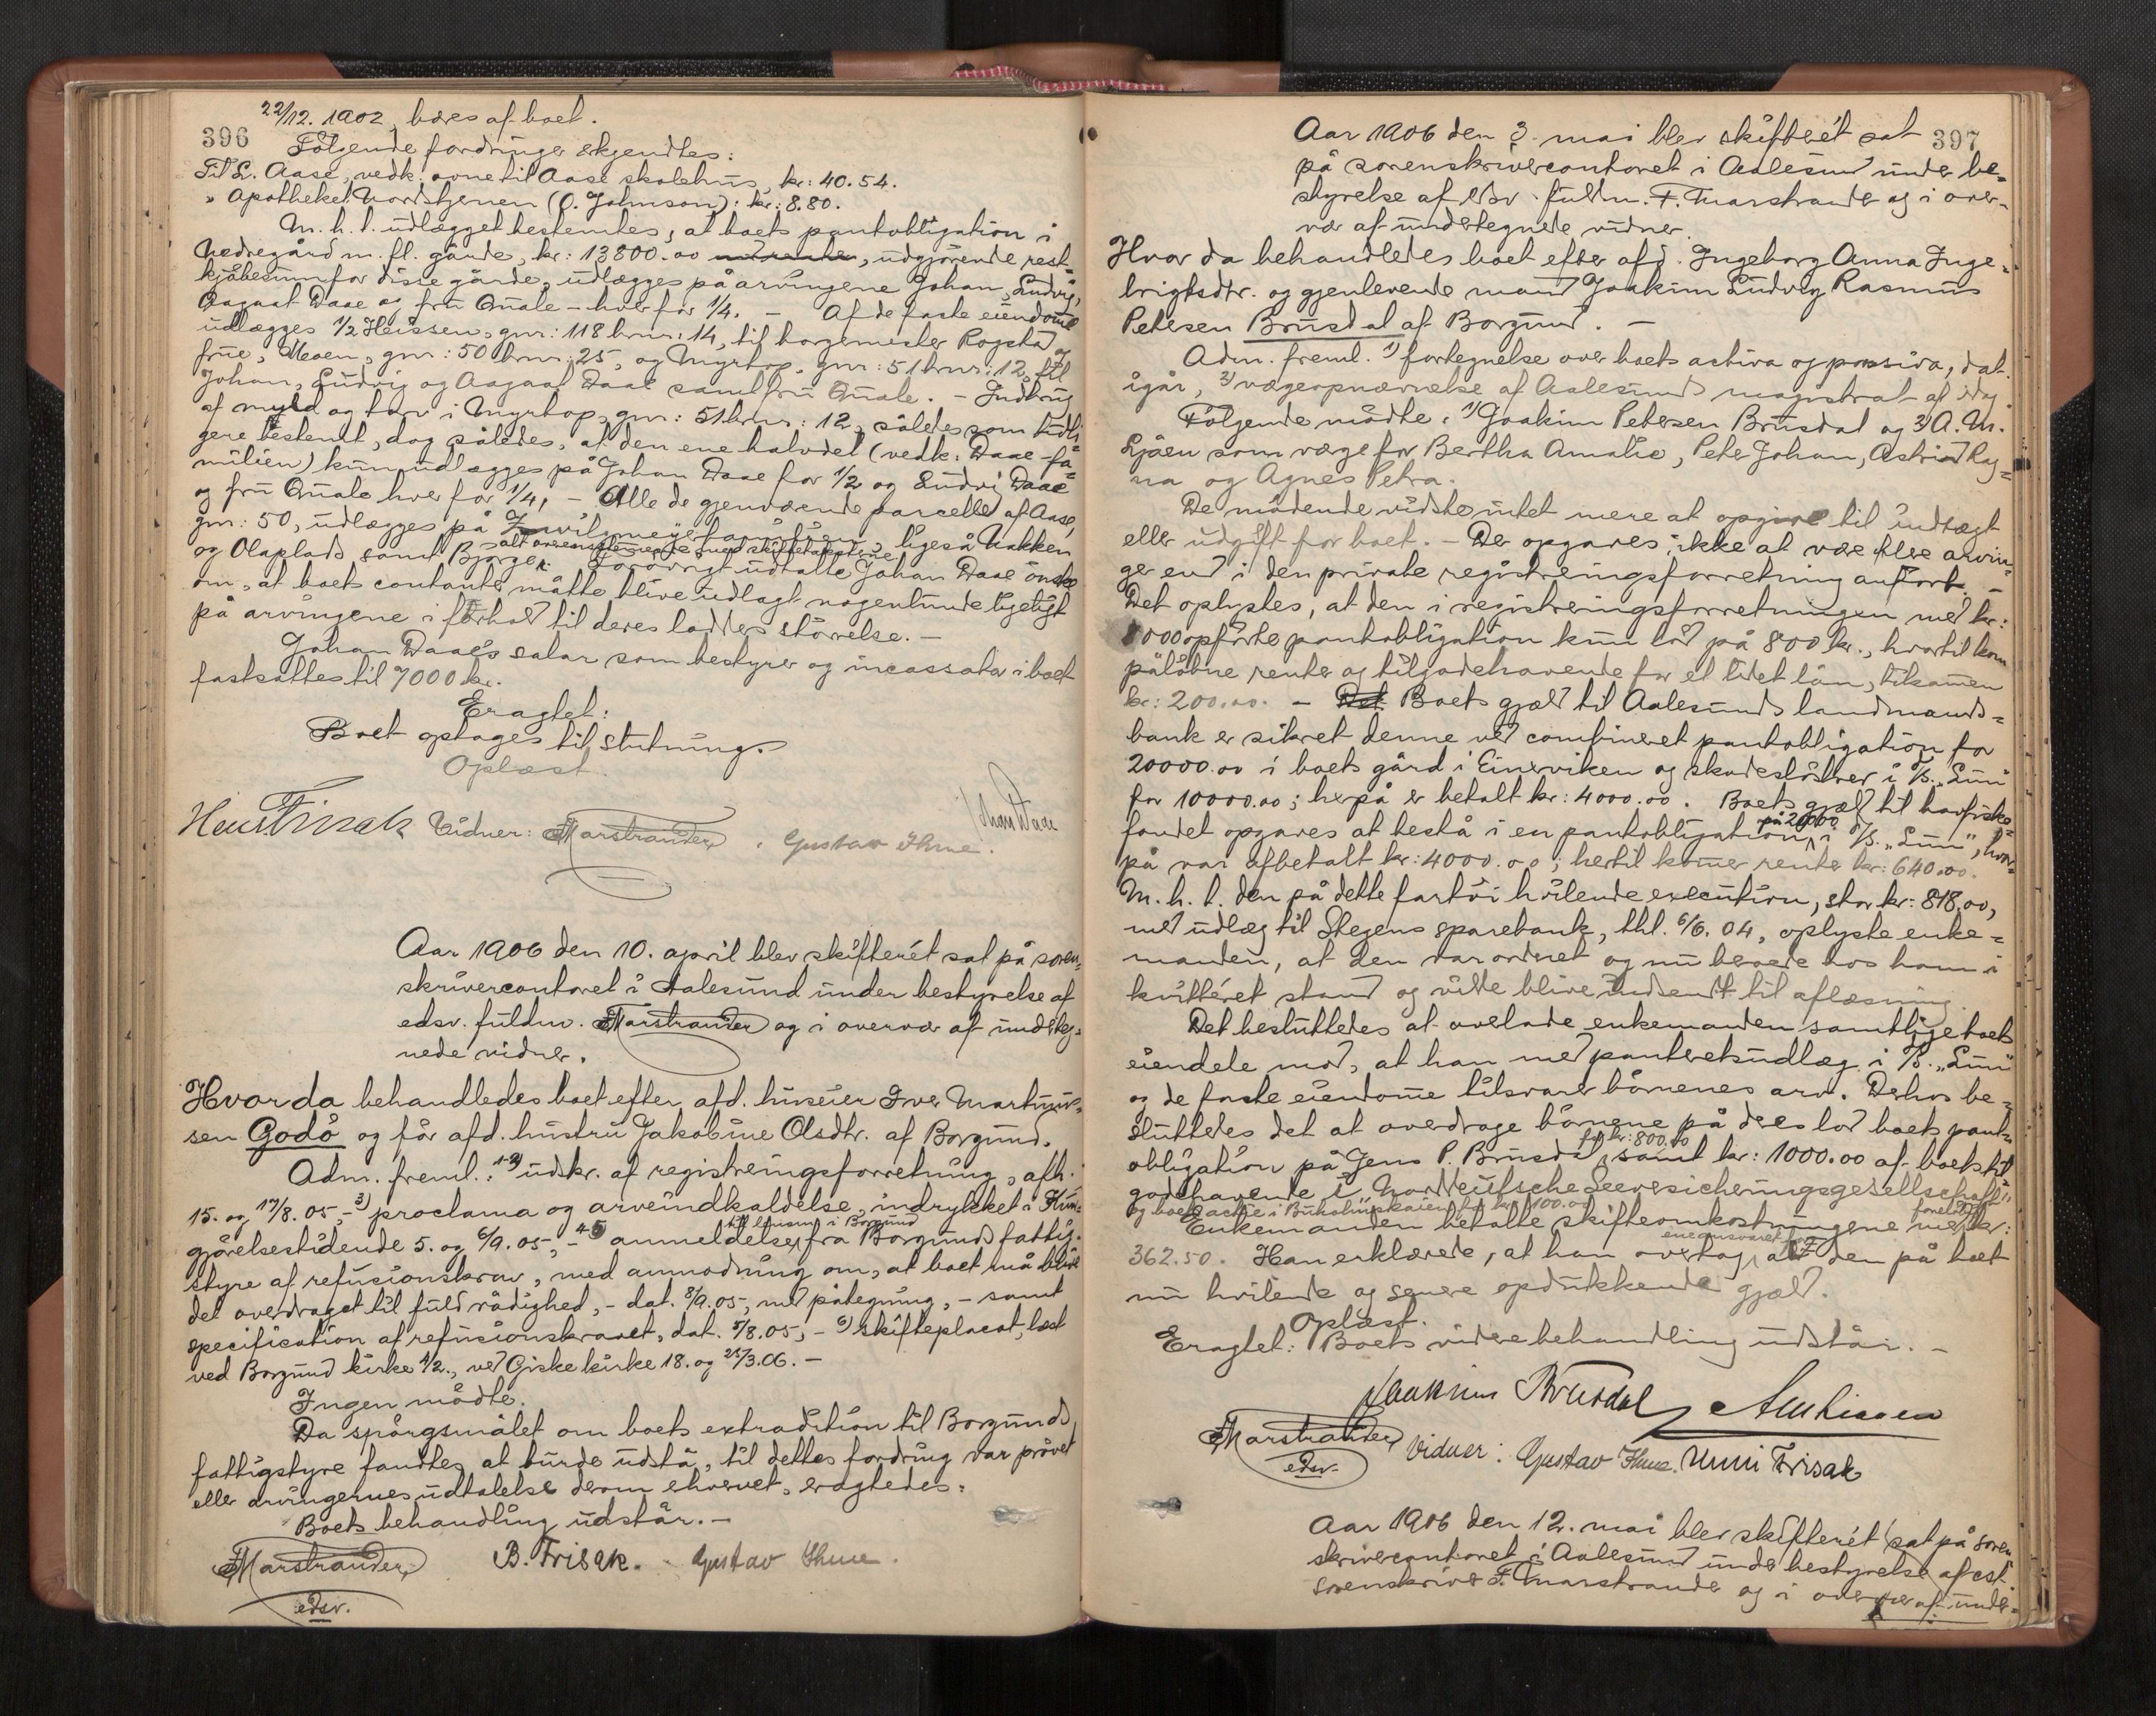 22/12. 1902, bæres af boet.
396
Følgende fordringer erkjendtes:
Til L. Aase, vedk. ovne til Aase skolehus, kr: 40.54.
" Apotheket Nordstjernen (O. Johnson): kr: 8.80.
M. h. t. udlægget bestemtes, at boets pantobligation i
Nedregård m. fl. gårde, kr: 13800.00, udgjørende rest-
kjøbesum for disse gårde, udlægges på arvingene Johan, Ludvig,
Aagaat Daae og fru Quale - hver for 1/4. - Af de faste eiendomme
udlægges 1/2 Heissen, gnr: 118 brnr: 14, til borgermester Rogstad
frue, Moen, gnr: 50 brnr: 25, og Myrtop, gnr: 51 brnr: 12, til
Johan, Ludvig og Aagaat Daae samt fru Quale. - Indtrug
af myld og torv i Myrtop, gnr: 51 brnr: 12, således som tidli-
gere bestemt, dog således, at den ene halvdel (vedk. Daae-fa-
milien) kun udlægges på Johan Daae for 1/2 og Ludvig Daae
og fru Quale hver for 1/4. - Alle de gjenværende parceller af Aase,
gnr: 50, udlægges på ligeså Nakken
alt overensstemmende med skiftetaksterne
og Olaplads samt Bjørge. Forøvrigt udtalte Johan Daae ønske
om, at boets contanter måtte blive udlagt nogenlunde ligeligt
på arvingene i forhold til deres lodders størrelse. -
Johan Daaes salær som bestyrer og incassator i boet
fastsattes til 7000 kr.
Eragtet:
Boet optages til slutning.
Oplæst.
Johan Daae
Vidner: Marstrander, Gustav Thue.
Aar 1906 den 10. april blev skifteret sat på soren-
skrivercontoret i Aalesund under bestyrelse af
edsv. fuldm. F. Marstrander og i overvær af undteg-
nede vidner.
Hvor da behandledes boet efter afd. huseier Iver Martinus-
sen Godø og før afd. hustru Jakobine Olsdtr. af Borgund.
Adm. freml.: 1-2) udskr. af registreringsforretning, afh.
15. og 17/8. 05, - 3) proclama og arveindkaldelse, indrykket i Kund-
gjørelsestidende 5. og 6/9. 05, - 4-5) anmeldelse fra Borgunds fattig-
styre af refusionskrav, med anmodning om, at boet må blive
det overdraget til fuld rådighed, - dat. 8/9. 05, med påtegning, - samt
specification af refusionskravet, dat. 5/8. 05, - 6) skifteplacat, læst
ved Borgund kirke 4/2., ved Giske kirke 18. og 25/3. 06. -
Ingen mødte.
Da spørgsmålet om boets extradition til Borgunds
fattigstyre fandtes at burde udstå, til dettes fordring var prøvet
eller arvingernes udtalelse derom ehvervet, eragtedes:
Boets behandling udstår. -
F Marstrander
edsv.
B. Frisak. Gustav Thue.
397
Aar 1906 den 3. mai blev skifteret sat
på sorenskrivercontoret i Aalesund under be-
styrelse af edsv. fuldm. F. Marstrander og i over-
vær af undertegnede vidner.
Hvor da behandledes boet efter afd. Ingeborg Anna Inge-
brigtsdtr. og gjenlevende mand Joakim Ludvig Rasmus
Petersen Brusdal af Borgund. -
Adm. freml. 1) fortegnelse over boets activa og passiva, dat.
igår, 2) vægeopnævnelse af Aalesunds magistrat af idag.
Følgende mødte: 1) Joakim Petersen Brusdal og 2) A. M.
Liåen som værge for Bertha Amalie, Peter Johan, Astrid Rag-
na og Agnes Petra.
De mødende vidste intet mere at opgive til indtægt
eller udgift for boet. - Der opgaves ikke at være flere arvin-
ger end i den private registreringsforretning anført. -
Det oplystes, at den i registreringsforretningen med kr:
1000 opførte pantobligation kun lød på 800 kr., hvortil kom
påløbne renter og tilgodehavende for et lidet lån, tilsammen
kr: 200.00. - Det Boets gjæld til Aalesunds landmands-
bank er sikret denne ved combineret pantobligation for
20000.00 i boets gård i Einerviken og skadesløsbrev i D/S. "Luni"
for 10000.00; herpå er betalt kr: 4000.00. Boets gjæld til havfiske-
på 20000
fondet opgaves at bestå i en pantobligation i D/S. "Luni", hvor-
på var afbetalt kr: 4000.00; hertil kommer renter kr: 640.00.
M. h. t. den på dette fartøi hvilende execution, stor kr: 818.00,
med udlæg til Stegens sparebank, thl. 6/6. 04, oplyste enke-
manden, at den var ordnet og nu beroede hos ham i
kvitteret stand og vilde blive indsendt til aflæsning.
Det besluttedes at overlade enkemanden samtlige boets
eiendele mod, at han med panteretsudlæg i D/S. "Luni"
og de faste eiendomme tilsvarer børnenes arv. Derhos be-
sluttedes det at overdrage børnene på deres lod boets pant-
for kr: 800.00
obligation på Jens P. Brusdal, samt kr: 1000.00 af boets til-
godehavende i "Nordteutsche Seeversicherungsgesellschaft",
og boets actie i Buholmskaien for kr: 100.00
Enkemanden betalte skifteomkostningene med kr:
eneansvaret for
362.50. Han erklærede, at han overtog al den på boet
nu hvilende og senere opdukkende gjæld.
Oplæst.
Eragtet: Boets videre behandling udstår. -
Joakim Brusdal
F Marstrander
edsv.
Vidner: Gustav Thue. Unni Frisak
Aar 1906 den 12. mai blev skifteret sat på soren-
skrivercontoret i Aalesund under bestyrelse af cst.
sorenskriver F. Marstrander og i overvær af under-